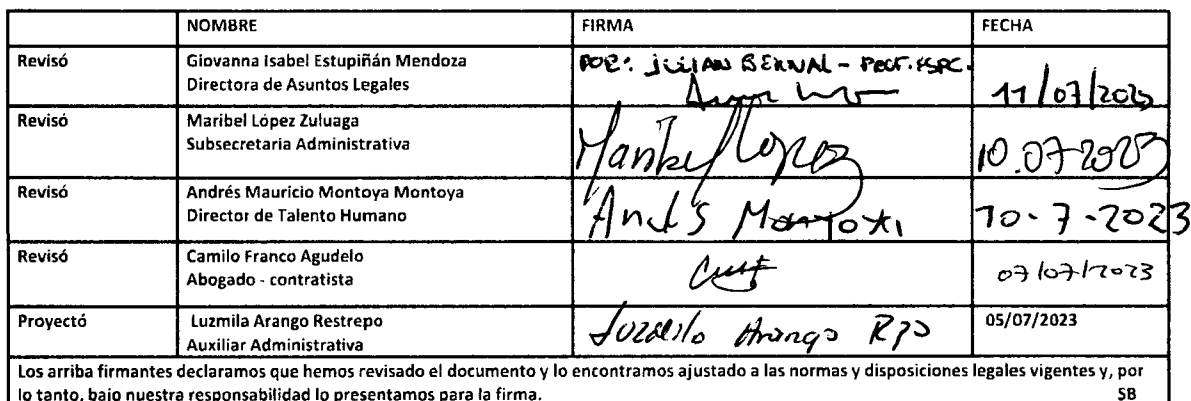 NOMBRE FIRMA FECHA
Revisó Giovanna Isabel Estupiñán Mendoza POR: JULIAN BERNAL - PROF. ESPC.
Directora de Asuntos Legales 11/07/2023
Revisó Maribel López Zuluaga
Subsecretaria Administrativa Maribel López 10.07-2023
Revisó Andrés Mauricio Montoya Montoya
Director de Talento Humano Andrés Montoya 10-7-2023
Revisó Camilo Franco Agudelo
Abogado - contratista 07/07/2023
Proyectó Luzmila Arango Restrepo 05/07/2023
Auxiliar Administrativa Luzmila Arango Rpo
Los arriba firmantes declaramos que hemos revisado el documento y lo encontramos ajustado a las normas y disposiciones legales vigentes y, por
lo tanto, bajo nuestra responsabilidad lo presentamos para la firma. SB